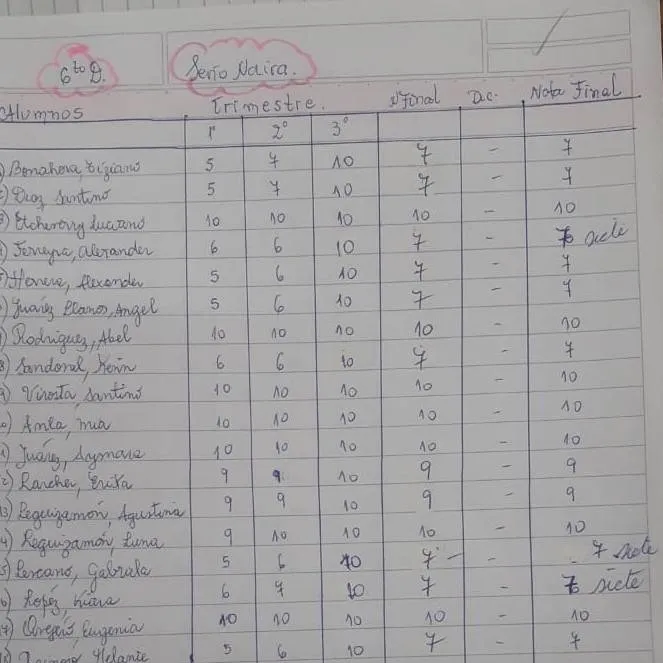 6to D. Serio Naira.
Alumnos Trimestre. N Final Dic. Nota Final
1° 2° 3°
5 7 10 7 - 7
Diaz Santino 5 7 10 7 - 7
3) Etcheverry Luciano 10 10 10 10 - 10
Ferreyra, Alexander 6 6 10 7 - 7 siete
Alexander 5 6 10 7 - 7
Juarez Llanos, Angel 5 6 10 7 - 7
Rodriguez, Abel 10 10 10 10 - 10
8) Sandoval, Kevin 6 6 10 7 - 7
9) Virosta Santino 10 10 10 10 - 10
mia 10 10 10 10 - 10
Juárez, Aymara 10 10 10 10 - 10
2) Erika 9 9 10 9 - 9
3) Leguizamón, Agustina 9 9 10 9 - 9
4) Leguizamón, Luna 9 10 10 10 - 10
5) Lescano, Gabriela 5 6 10 7 - - 7 siete
6) Lopéz, Kiara 6 7 10 7 - 7 siete
7) Eugenia 10 10 10 10 - 10
Melanie 5 6 10 7 - 7